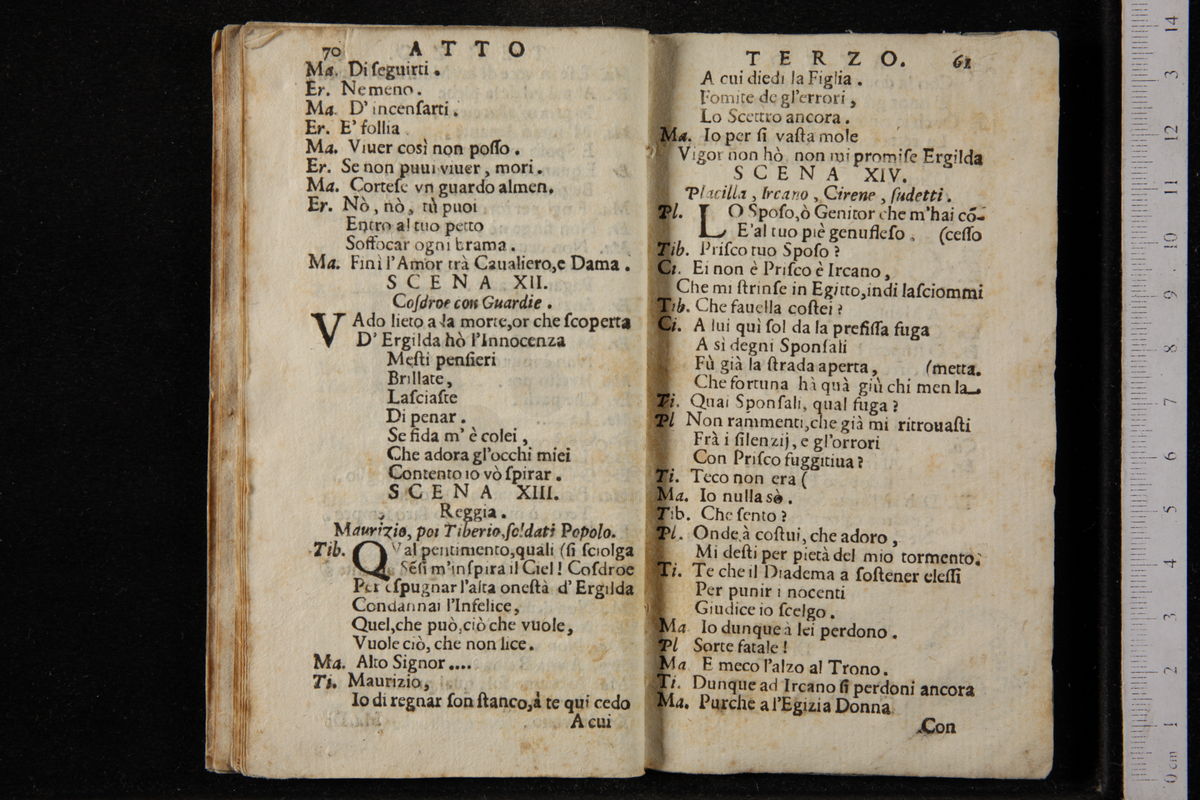 70 ATTO
Ma. Di ſeguirti.
Er. Ne meno.
Ma. D' incenſarti.
Er. E' follia
Ma. Viuer così non poſſo.
Er. Se non puui viuer, mori.
Ma. Corteſe vn guardo almen.
Er. Nò, nò, tù puoi
Entro al tuo petto
Soffocar ogni brama.
Ma. Finì l'Amor trà Caualiero, e Dama.
SCENA XII.
Coſdroe con Guardie.
VAdo lieto a la morte, or che ſcoperta
D' Ergilda hò l'Innocenza
Meſti penſieri
Brillate,
Laſciaſte
Di penar.
Se fida m' è colei,
Che adora gl'occhi miei
Contento io vò ſpirar.
SCENA XIII.
Reggia.
Maurizio, poi Tiberio, ſoldati Popolo.
Tib. QVal pentimento, quali (ſi ſciolga
Sēſi m'inſpira il Ciel! Coſdroe
Per eſpugnar l'alta oneſtà d' Ergilda
Condannai l'Infelice,
Quel, che può, ciò che vuole,
Vuole ciò, che non lice.
Ma. Alto Signor....
Ti. Maurizio,
Io di regnar ſon ſtanco, à te qui cedo
A cui
TERZO. 61
A cui diedi la Figlia.
Fomite de gl'errori,
Lo Scettro ancora.
Ma. Io per ſi vaſta mole
Vigor non hò non mi promiſe Ergilda
SCENA XIV.
Placilla, Ircano, Cirene, ſudetti.
Pl. LO Spoſo, ò Genitor che m'hai cō-
E'al tuo piè genufleſo. (ceſſo
Tib. Priſco tuo Spoſo?
Ci. Ei non è Priſco è Ircano,
Che mi ſtrinſe in Egitto, indi laſciommi
Tib. Che fauella coſtei?
Ci. A lui quì ſol da la prefiſſa fuga
A sì degni Sponſali
Fù già la ſtrada aperta, (metta.
Che fortuna hà quà giù chi men la
Ti. Quai Sponſali, qual fuga?
Pl Non rammenti, che già mi ritrouaſti
Frà i ſilenzij, e gl'orrori
Con Priſco fuggitiua?
Ti. Teco non era (
Ma. Io nulla sò.
Tib. Che ſento?
Pl. Onde à coſtui, che adoro,
Mi deſti per pietà del mio tormento.
Ti. Te che il Diadema a ſoſtener eleſſi
Per punir i nocenti
Giudice io ſcelgo.
Ma Io dunque à lei perdono.
Pl Sorte fatale!
Ma E meco l'alzo al Trono.
Ti. Dunque ad Ircano ſi perdoni ancora
Ma. Purche a l'Egizia Donna
Con